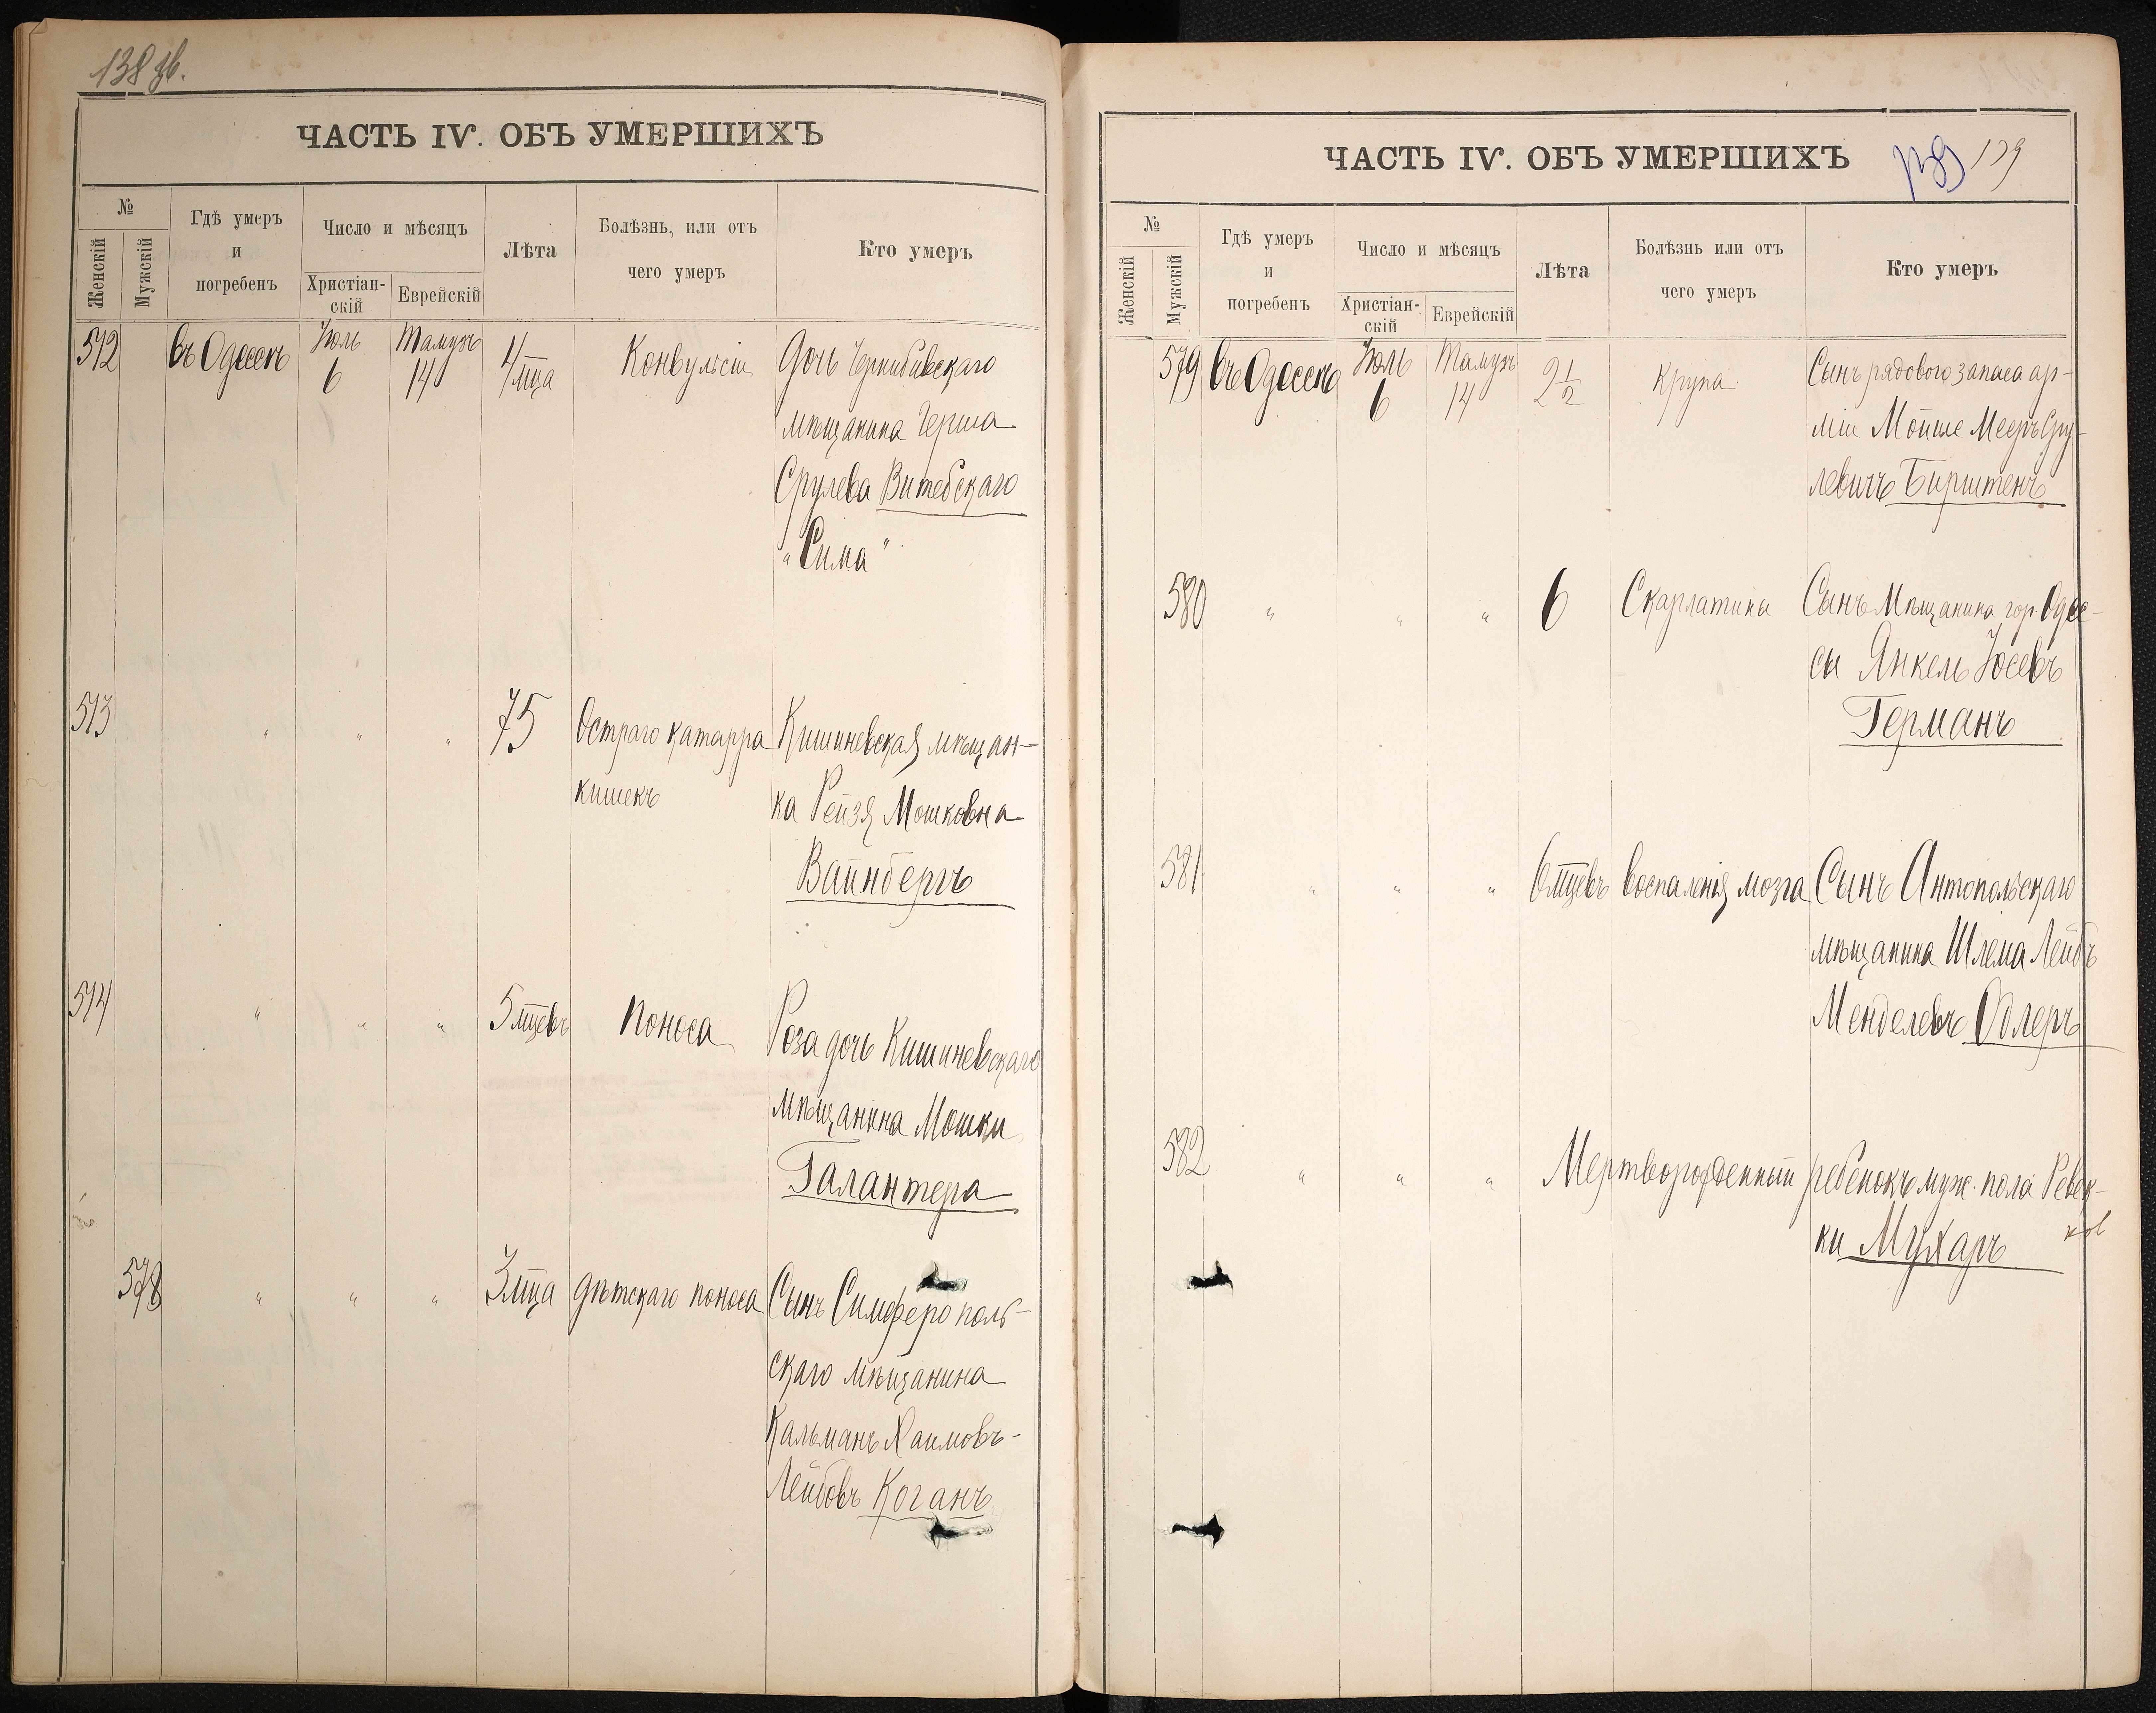 138 об.
ЧАСТЬ IV. ОБЪ УМЕРШИХЪ
№
Женскій
Мужскій
Гдѣ умеръ
и
погребенъ
Число и мѣсяцъ
Христіан-
скій
Еврейскій
Лѣта
Болѣзнь, или отъ
чего умеръ
Кто умеръ
572 въ Одессѣ Іюль 6 Тамузъ 14 4 мца Конвульсіи Дочь
мѣщанина Герша
Срулева Витебскаго
"Сима"
573 " " " 75 Остраго катарра Кишиневская мѣщан-
кишекъ ка Рейзя Мошковна
Вайнбергъ
574 " " " 5 мцевъ Поноса Роза дочь Кишиневскаго
мѣщанина Мошки
Галантера
578 " " " 3 мца дѣтскаго поноса Сынъ Симферополь-
скаго мѣщанина
Кальманъ Хаимовъ-
Лейбовъ Коганъ
ЧАСТЬ IV. ОБЪ УМЕРШИХЪ
139 139
№
Женскій
Мужскій
Гдѣ умеръ
и
погребенъ
Число и мѣсяцъ
Христіан-
скій
Еврейскій
Лѣта
Болѣзнь или отъ
чего умеръ
Кто умеръ
579 въ Одессѣ Іюль 6 Тамузъ 14 2 1/2 Крупа Сынъ рядового запаса ар-
міи Мойше Мееръ Сру-
левичъ Бирштенъ
580 " " " 6 Скарлатина Сынъ Мѣщанина гор. Одес-
сы Янкель Іосевъ
Германъ
581. " " " 6 мцевъ воспаленія мозга Сынъ Антопольскаго
мѣщанина Шлема Лейбъ
Менделевъ Одлеръ
582 " " " Мертворожденный ребенокъ муж. пола Ревек-
ки Мухаръ